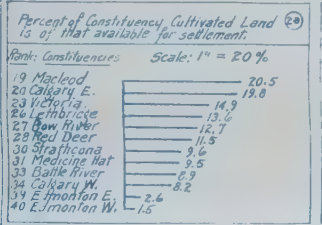 Percent of Constituency Cultivated Land
is of that available for settlement.
28
Rank: Constituencies Scale: 1" = 20%
19 Macleod 20.5
20 Calgary E. 19.8
23 Victoria. 14.9
26 Lethbridge 13.6
27 Bow River 12.7
28 Red Deer 11.5
30 Strathcona 9.6
31 Medicine Hat 9.5
33 Battle River 8.9
34 Calgary W. 8.2
39 Edmonton E. 2.6
40 Edmonton W. 1.6